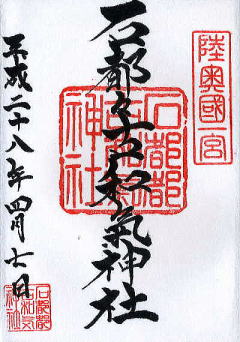 陸奥國一宮
石都々古和気神社
石都都
古和気
神社
平成二十八年四月七日
石都都
古和気
神社